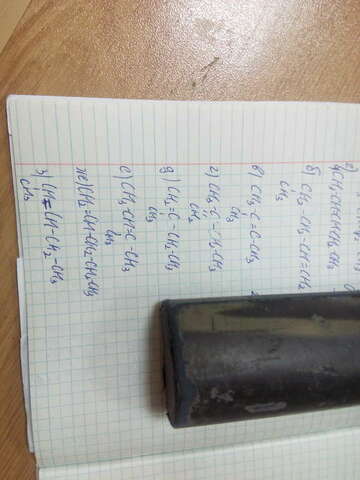 а) CH3CH=CH CH2 CH3
б) CH3-CH-CH=CH2
CH3
в) CH3-C=C-CH3
CH3
г) CH3-C-CH2CH3
CH2
д) CH2-C-CH2-CH3
CH3
е) CH3-CH-C-CH3
CH3
ж) CH2=CH-CH2-CH2CH3
з) CH=CH-CH2-CH3
CH3